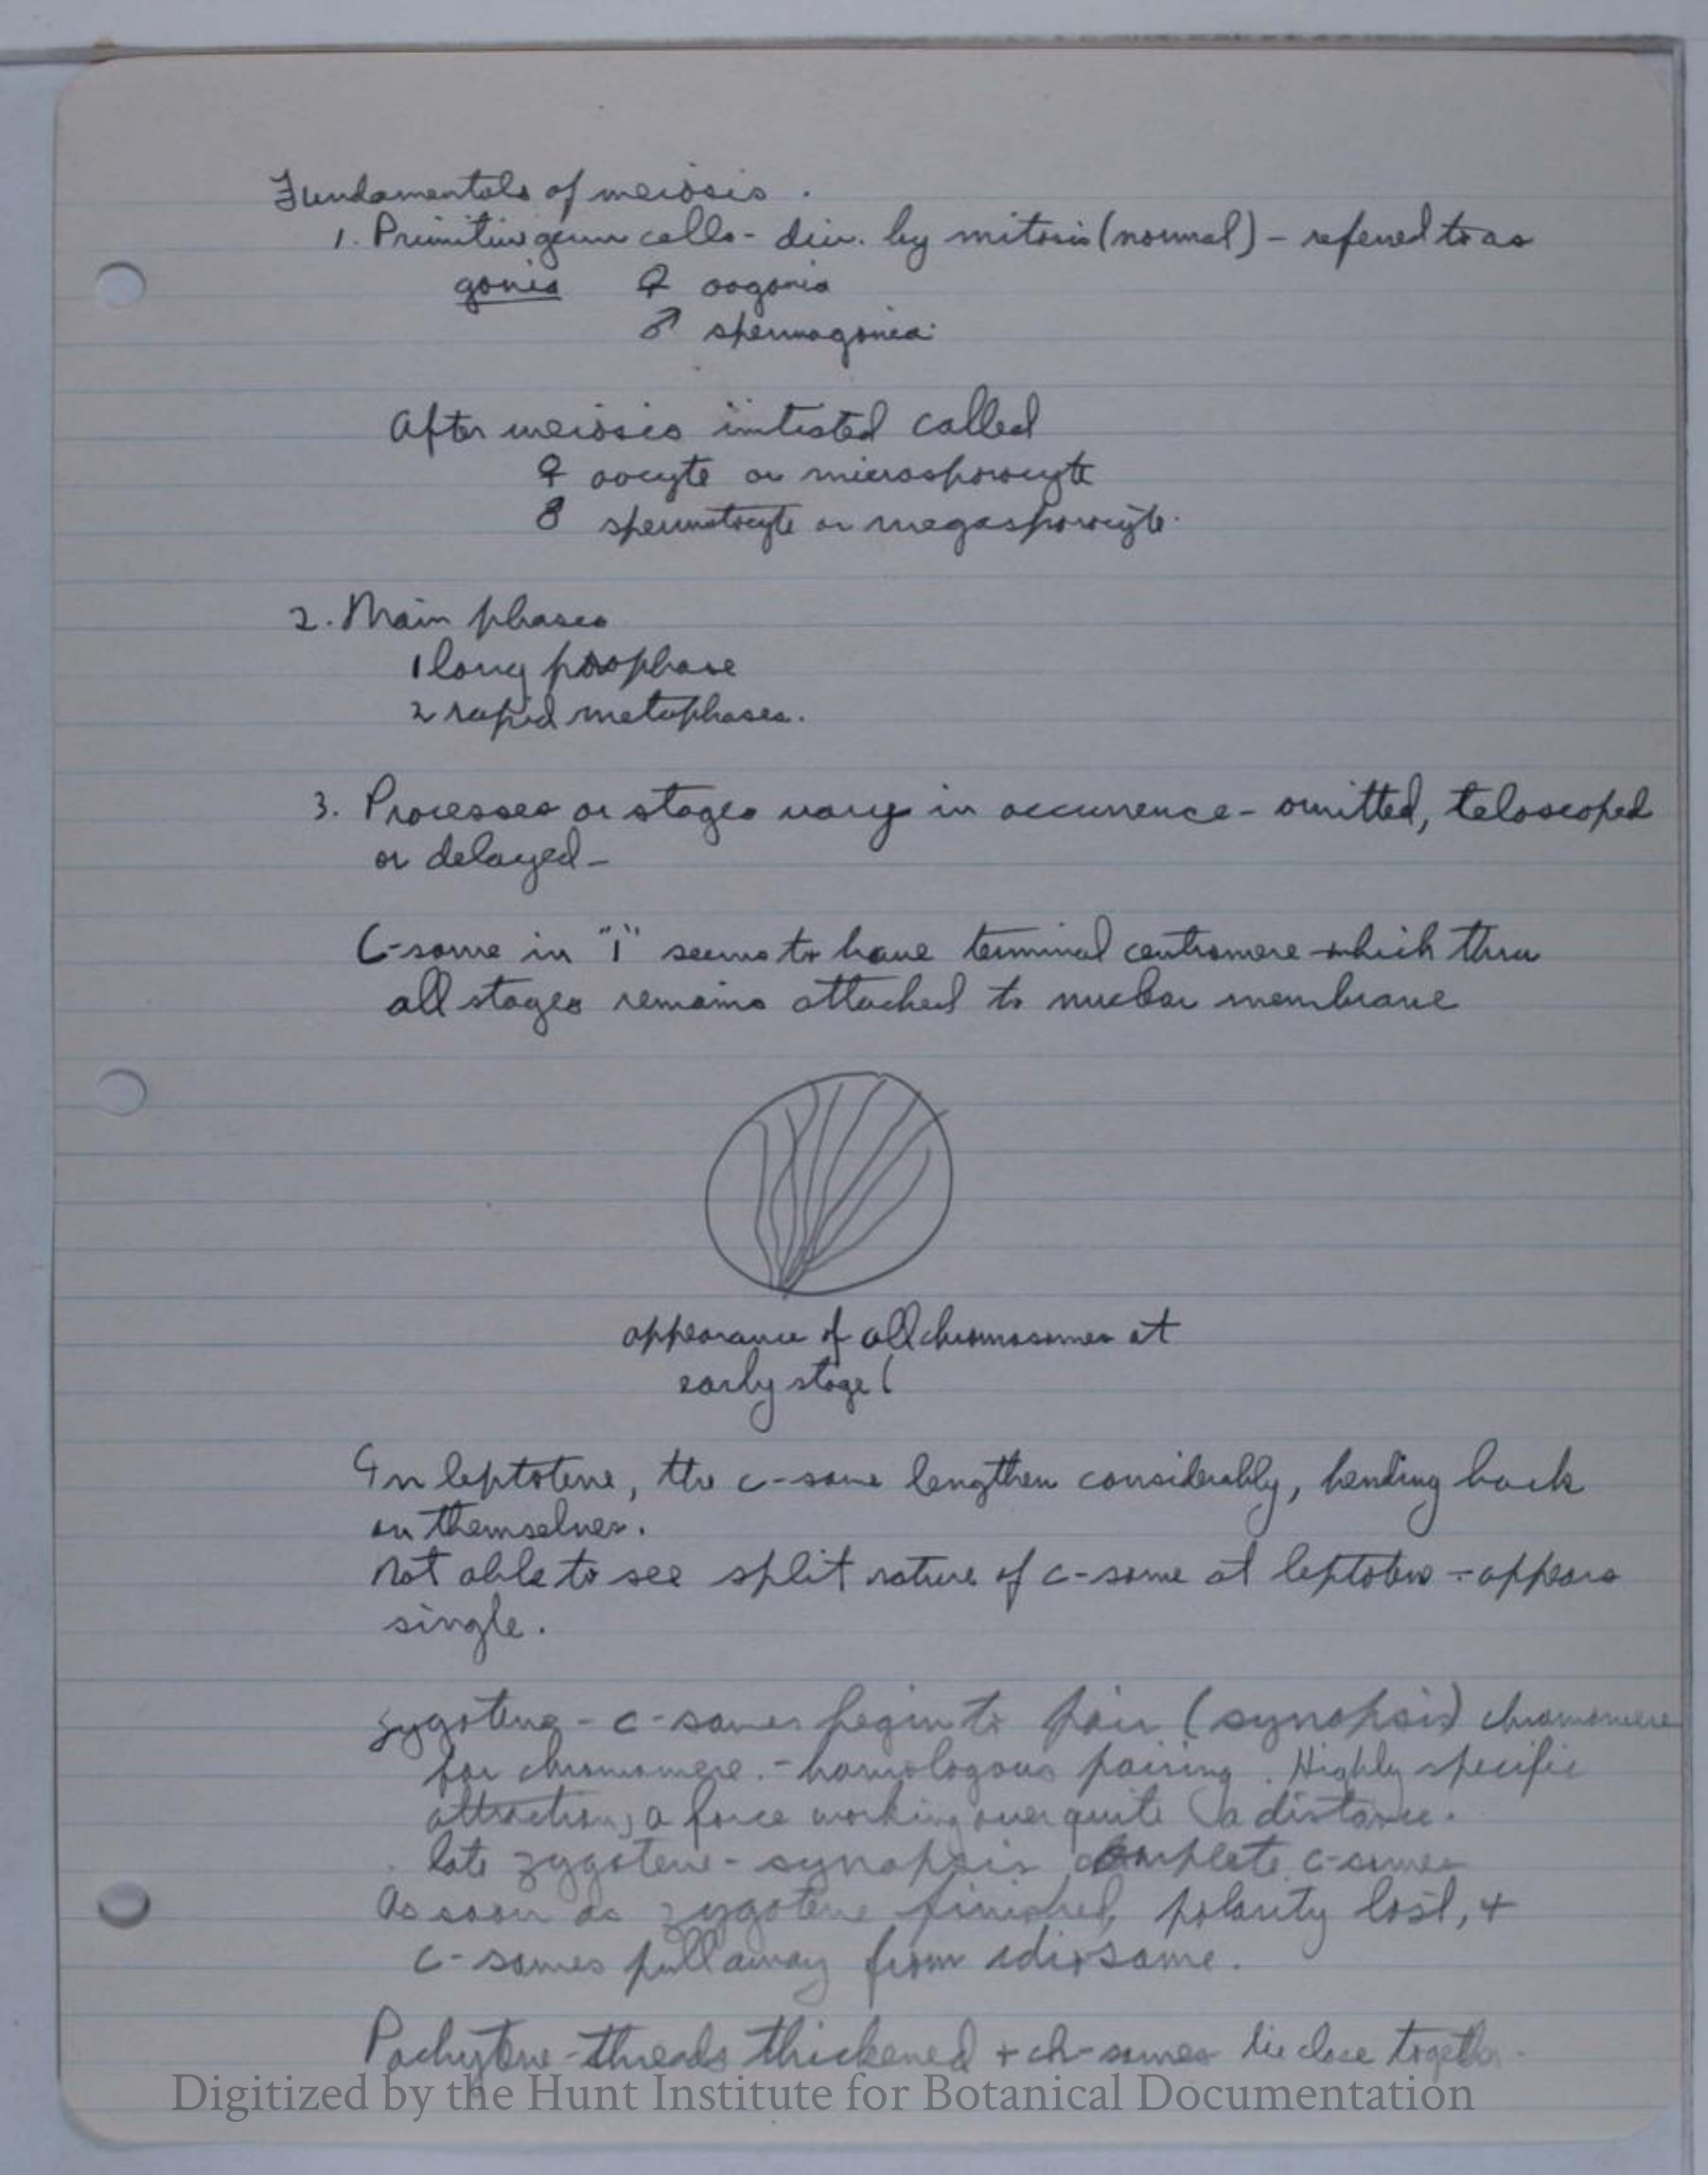 Fundamentals of meiosis.
1. Primitive germ cells - div. by mitosis (normal) - refered to as
gonia ♀ oogonia
♂ spermagonia.
After meiosis intiated called
♀ oocyte or microsporocyte
♂ spermatocyte or megasporocyte.
2. Main phases
1 long prophase
2 rapid metaphases.
3. Processes or stages vary in occurrence - omitted, teloscoped
or delayed -
C-some in "i" seems to have terminal centromere which thru
all stages remains attached to nuclear membrane
appearance of all chromosomes at
early stage!
In leptotene, the c-some lengthen considerably, bending back
on themselves.
Not able to see split nature of c-some at leptotene - appears
single.
Zygotene - c-somes begin to pair (synapsis) chromomere
for chromomere. - homologous pairing. Highly specific
attraction, a force working over quite a distance.
late zygotene - synapsis complete c-somes
As soon as zygotene finished, polarity lost, +
c-somes pull away from idiosome.
Pachytene - threads thickened + ch-somes lie close together.
Digitized by the Hunt Institute for Botanical Documentation